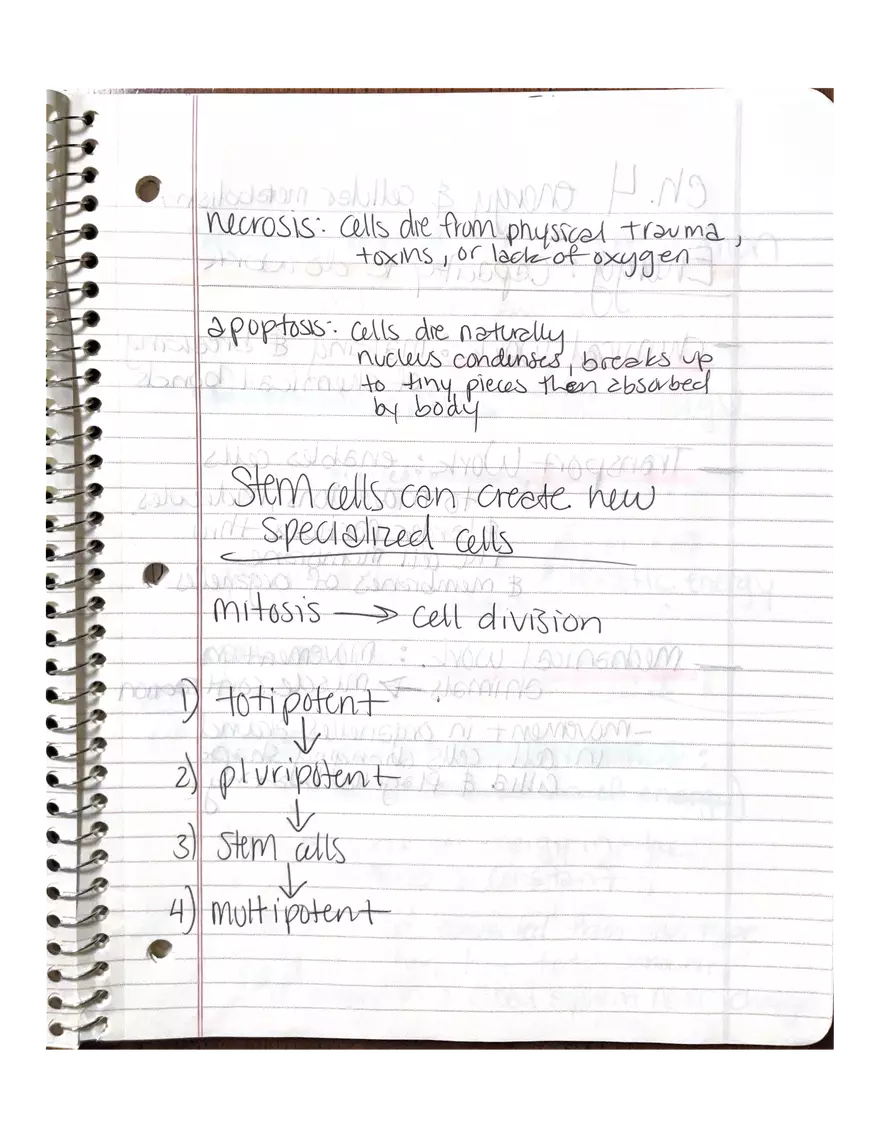 necrosis: cells die from physical trauma,
toxins, or lack of oxygen
apoptosis: cells die naturally
nucleus condenses, breaks up
to tiny pieces then absorbed
by body
Stem cells can create new
specialized cells
mitosis → cell division
1) totipotent
↓
2) pluripotent
↓
3) stem cells
↓
4) multipotent